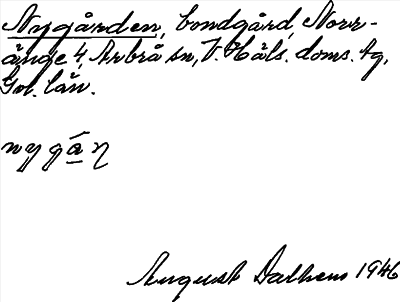 Nygården, bondgård, Norr-
änge 4, Arbrå sn, V. Häls. doms. tg,
Gvl. län.
nygá̱ɳ
August Dalhem 1946